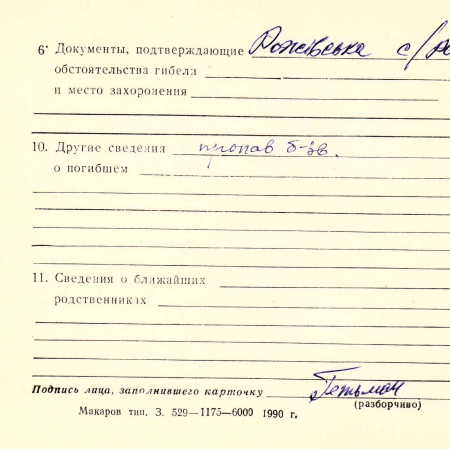 6. Документы, подтверждающие Рожівська с/ра
обстоятельства гибели
и место захоронения
10. Другие сведения пропав б-зв.
о погибшем
11. Сведения о ближайших
родственниках
Подпись лица, заполнившего карточку Гетьман
(разборчиво)
Макаров тип. З. 529—1175—6000 1990 г.